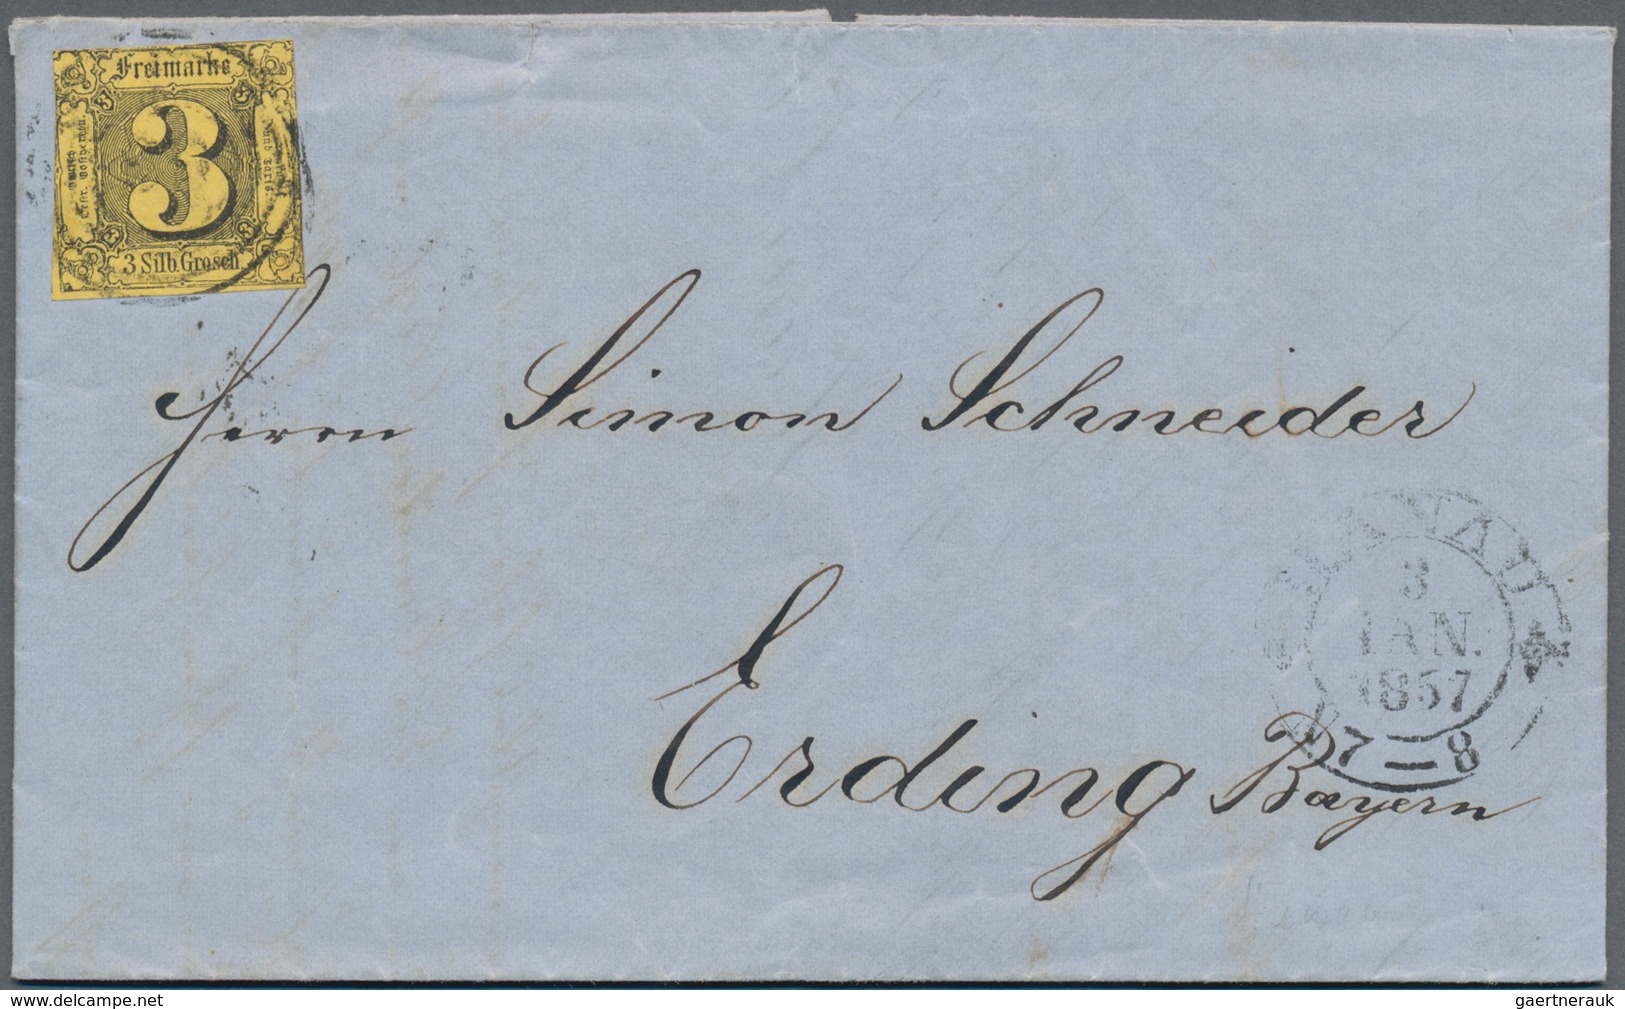 Freimarke
3
3 Silb. Grosch.
Herrn Simon Schneider
Erding Bayern
HANAU
3
JAN.
1857
7–8
www.delcampe.net
gaertnerauk